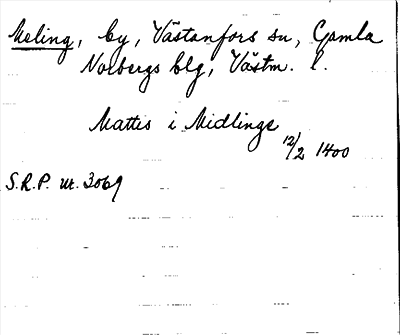 Meling, by, Västanfors sn, Gamla
Norbergs blg, Västm. l.
Mattis i Midlinge
12/2 1400
S.R.P. nr. 3069